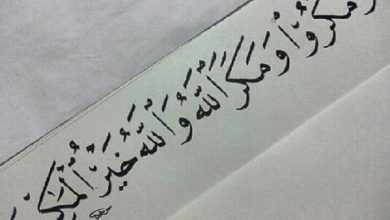 وَمَكَرُوا۟ وَمَكَرَ ٱللَّهُ وَٱللَّهُ خَيْرُ ٱلْمَـٰكِرِ